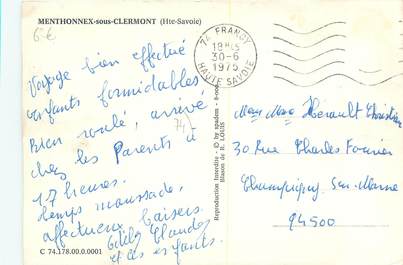 MENTHONNEX-sous-CLERMONT (Hte-Savoie)
6€
Voyage bien effectué
enfants formidables
Bien roulé, arrivé
chez les Parents à
17 heures.
temps maussade,
affectueux baisers
Claudos
et les enfants.
C 74.178.00.0.0001
74
Reproduction Interdite - © by spadem -
Blason de R. LOUIS
74 FRANGY
18H15
30-6
1975
HAUTE SAVOIE
Hérault Christian
30 Rue Charles Fournier
Champigny Sur Marne
94500